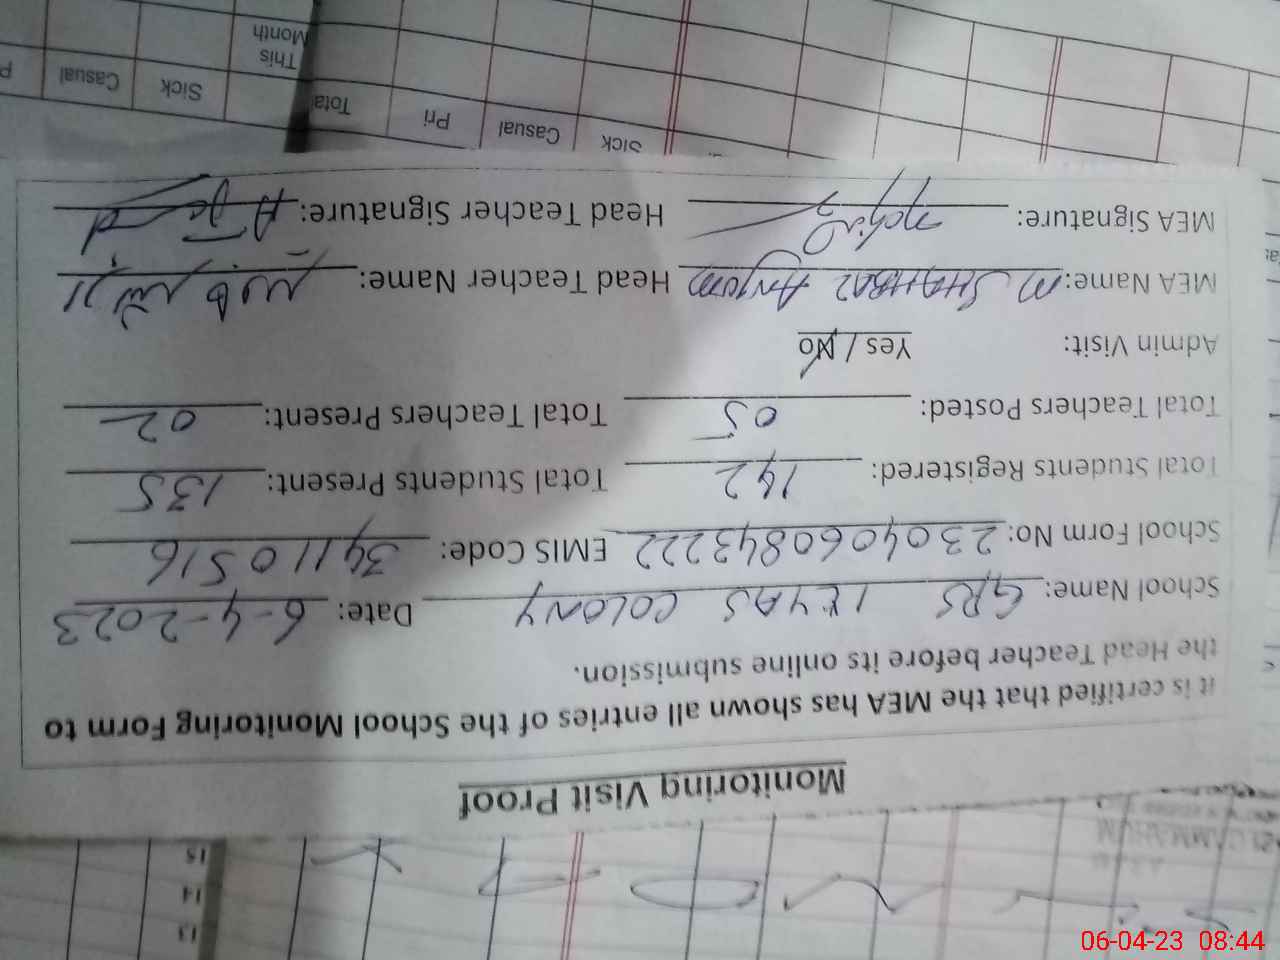 Monitoring Visit Proof
it is certified that the MEA has shown all entries of the School Monitoring Form to
the Head Teacher before its online submission.
School Name: GPS ILYAS COLONY Date: 6-4-2023
School Form No: 2304060843222 EMIS Code: 34110516
Total Students Registered: 142 Total Students Present: 135
Total Teachers Posted: 05 Total Teachers Present: 02
Admin Visit: Yes / No
MEA Name: M SHAHBAZ Anjum Head Teacher Name:
MEA Signature: Head Teacher Signature:
Sick Casual Pri Total
This Month Sick Casual
13
14
15
06-04-23 08:44